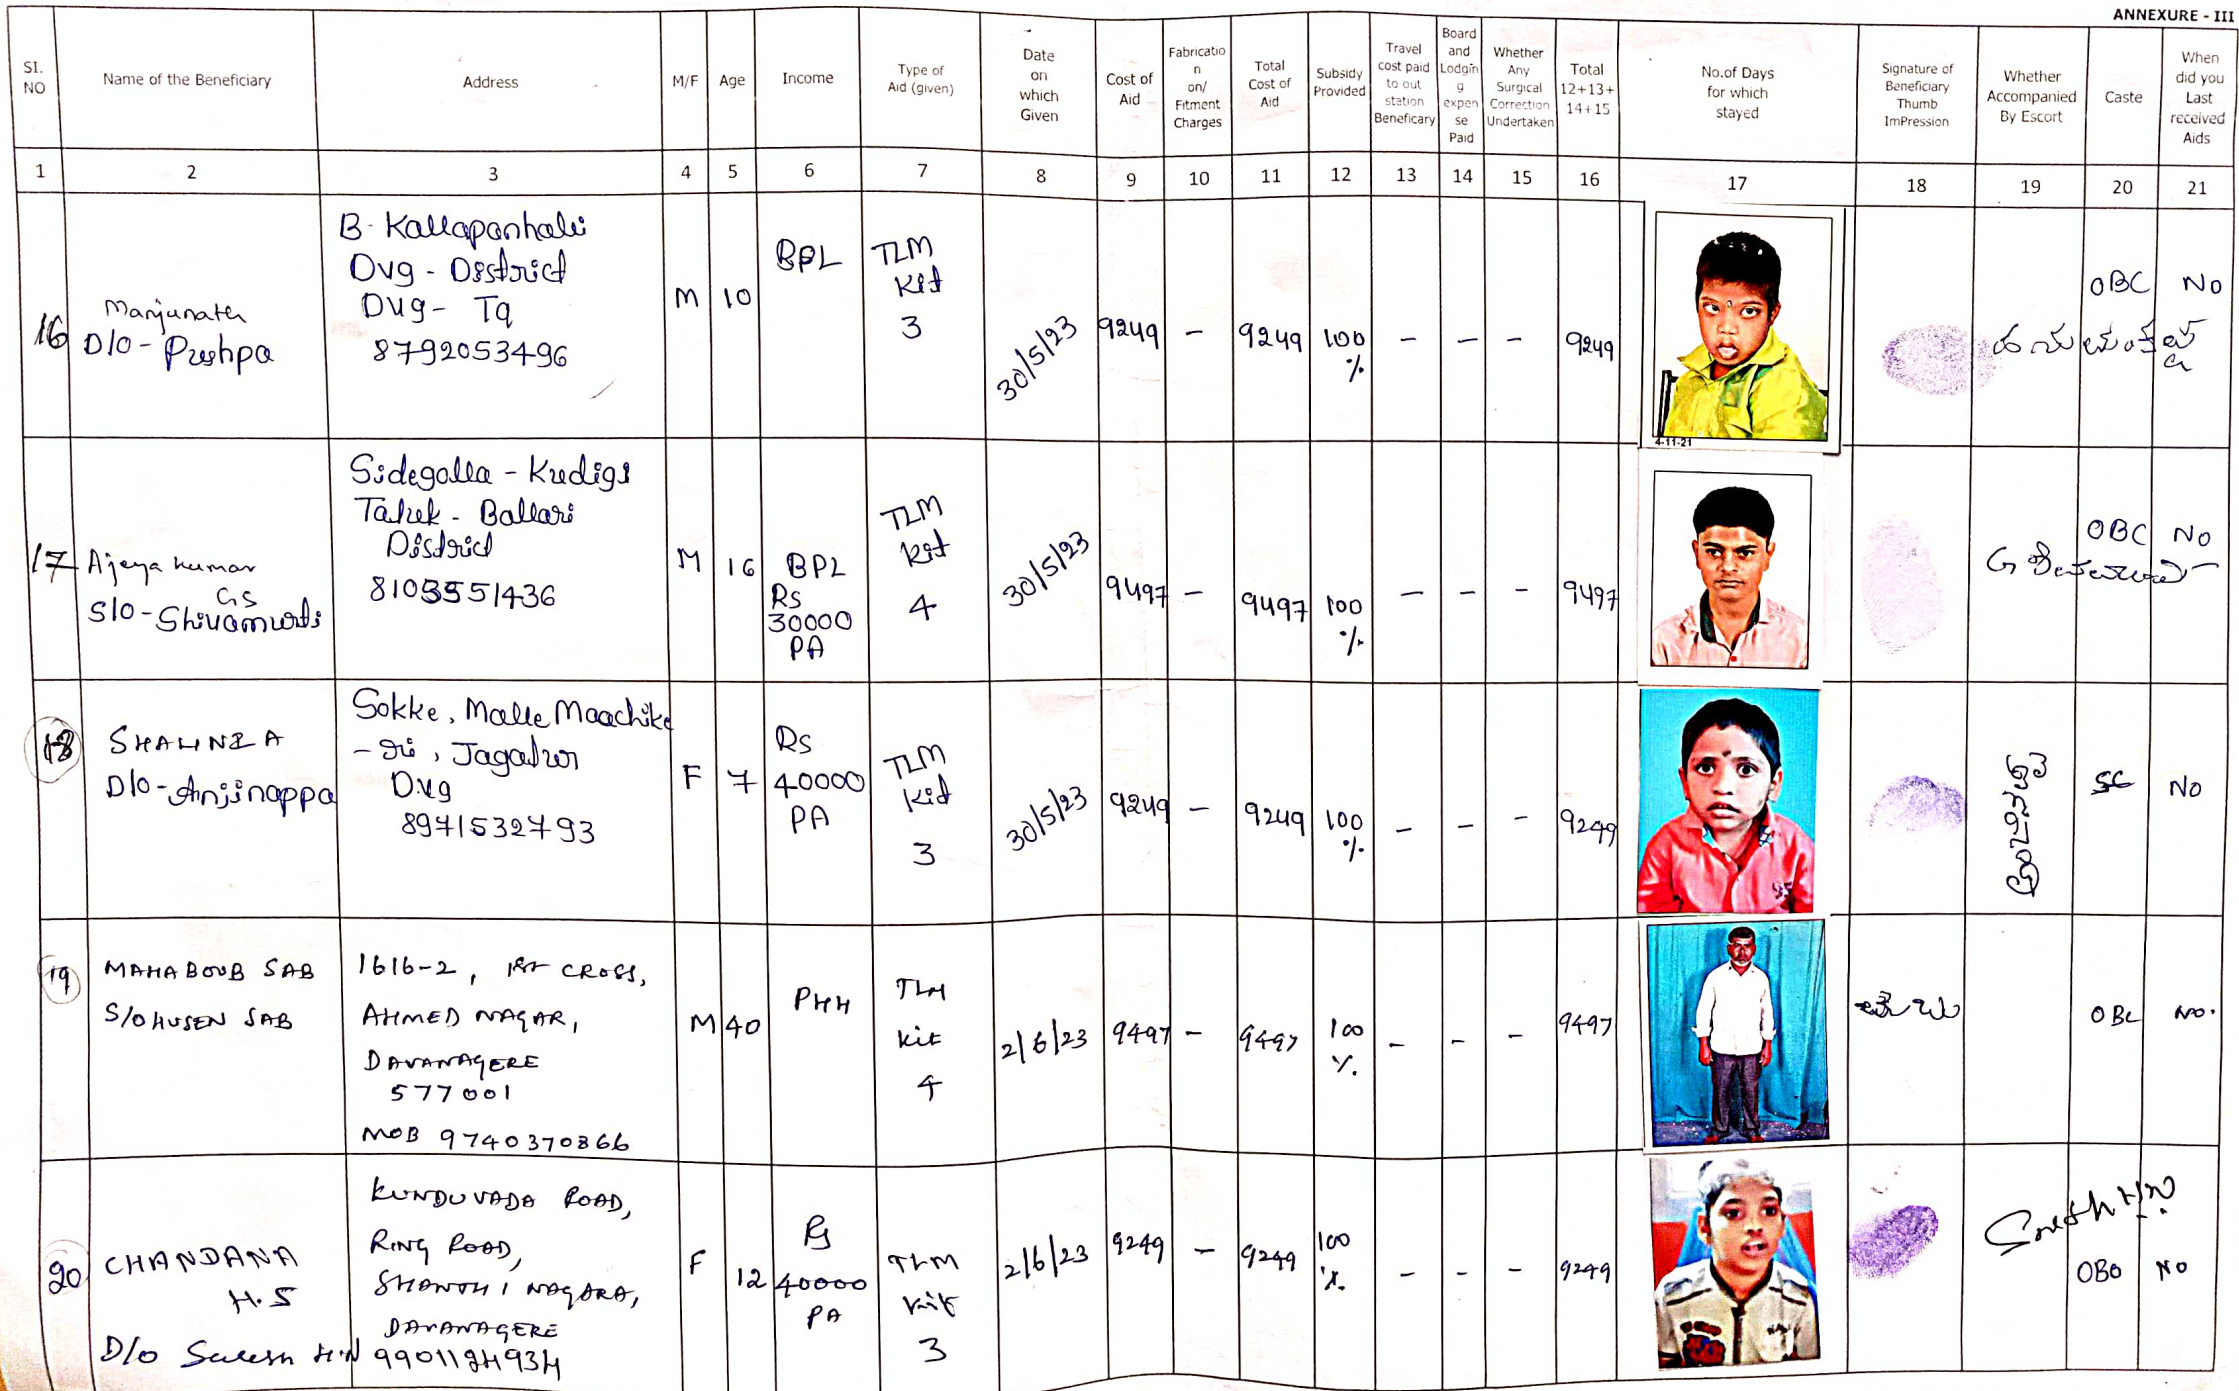 ANNEXURE - III
SI. NO
Name of the Beneficiary
Address
M/F
Age
Income
Type of Aid (given)
Date on which Given
Cost of Aid
Fabricatio n on/ Fitment Charges
Total Cost of Aid
Subsidy Provided
Travel cost paid to out station Beneficary
Board and Lodgin g expen se Paid
Whether Any Surgical Correction Undertaken
Total 12+13+ 14+15
No.of Days for which stayed
Signature of Beneficiary Thumb ImPression
Whether Accompanied By Escort
Caste
When did you Last received Aids
1 2 3 4 5 6 7 8 9 10 11 12 13 14 15 16 17 18 19 20 21
16
Manjunath
D/o - Pushpa
B. Kallapanhali
Dvg - District
Dvg - Tq
8792053496
M
10
BPL
TLM
Kit
3
30/5/23
9249
-
9249
100
%
-
-
-
9249
4-11-21
OBC
No
17
Ajaya kumar
G S
S/o - Shivamurti
Sidegolla - Kudigi
Taluk - Ballari
District
M
16
BPL
Rs
30000
PA
TLM
kit
4
30/5/23
9497
-
9497
100
%
-
-
-
9497
OBC
No
18
D/o - Anjinappa
Sokke, Malle Maachike
- ri, Jagalur
Dvg
8971532793
F
7
Rs
40000
PA
TLM
Kit
3
30/5/23
9249
-
9249
100
%
-
-
-
9249
ಅಂಜಿನಪ್ಪ
SC
No
19
MAHABOUB SAB
S/O HUSEN SAB
1616-2, 1st CROSS,
AHMED NAGAR,
DAVANAGERE
577001
MOB 9740370866
M
40
PHH
TLM
kit
4
2/6/23
9497
-
9497
100
%.
-
-
-
9497
OBC
No.
20
CHANDANA
H.S
D/o Suresh H.N
KUNDUVADA ROAD,
RING ROAD,
SHANTHI NAGARA,
DAVANAGERE
9901124934
F
12
Rs
40000
PA
TLM
kit
3
2/6/23
9249
-
9249
100
%.
-
-
-
9249
Suresh H.N
OBC
No